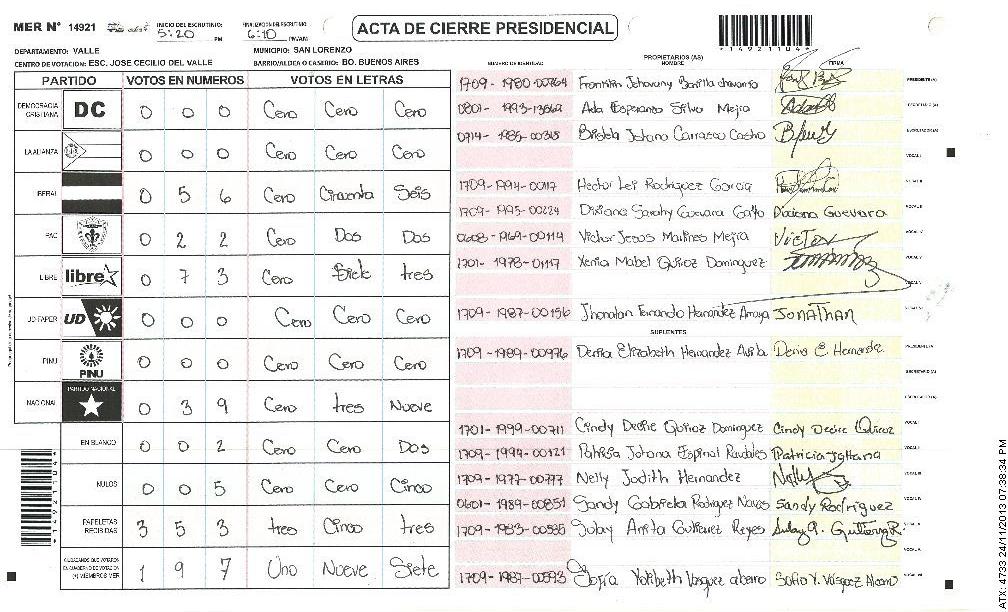 MER N° 14921 INICIO DEL ESCRUTINIO: 5:20 PM FINALIZACION DEL ESCRUTINIO: 6:10 PM/AM
ACTA DE CIERRE PRESIDENCIAL
*14921104*
DEPARTAMENTO: VALLE MUNICIPIO: SAN LORENZO
CENTRO DE VOTACION: ESC. JOSE CECILIO DEL VALLE BARRIO/ALDEA O CASERIO: BO. BUENOS AIRES
PARTIDO VOTOS EN NUMEROS VOTOS EN LETRAS
DEMOCRACIA CRISTIANA DC 0 0 0 Cero Cero Cero
LA ALIANZA 0 0 0 Cero Cero Cero
IBERAL 0 5 6 Cero Cincuenta Seis
PAC 0 2 2 Cero Dos Dos
LIBRE libre 0 7 3 Cero Siete tres
UD-FAPER UD 0 0 0 Cero Cero Cero
PINU PINU 0 0 0 Cero Cero Cero
NACIONAL PARTIDO NACIONAL 0 3 9 Cero tres Nueve
EN BLANCO 0 0 2 Cero Cero Dos
NULOS 0 0 5 Cero Cero Cinco
PAPELETAS RECIBIDAS 3 5 3 tres Cinco tres
CIUDADANOS QUE VOTARON EN CUADERNO DE VOTACION (+) MIEMBROS MER 1 9 7 Uno Nueve Siete
PROPIETARIOS (AS)
NUMERO DE IDENTIDAD NOMBRE FIRMA
1709-1980-00764 Franklin Jehovany Bonilla PRESIDENTE (A)
0801-1993-13669 Ada Esperanza Silva Mejia SECRETARIO (A)
0714-1985-00318 Johana Carrasco Castro ESCRUTADOR (A)
VOCAL I
1709-1994-00117 Hector Rodriguez Garcia VOCAL II
1709-1995-00224 Sarahy Guevara Dixiana Guevara VOCAL III
0608-1969-00114 Victor Jesus Martines Mejia Victor VOCAL IV
1701-1978-01117 Xenia Mabel Quiroz Dominguez VOCAL V
1709-1987-00156 Jhonatan Fernando Hernandez Amaya JONATHAN
SUPLENTES
1709-1989-00976 Denia Elizabeth Hernandez Avila Denia E. Hernandez PRESIDENTE (A)
SECRETARIO (A)
ESCRUTADOR (A)
1701-1999-00711 Cindy Desire Quiroz Dominguez Cindy Desire Quiroz VOCAL I
1709-1994-00121 Patricia Johana Espinal Raudales Patricia Johana
1709-1977-00777 Nelly Judith Hernandez Nelly VOCAL III
0601-1989-00851 Sandy Gabriela Rodriguez Sandy Rodriguez VOCAL IV
1709-1983-00585 Sulay Anita Gutierrez Reyes Sulay A. Gutierrez R.
1709-1987-00593 Sofia Yolibeth Vasquez Sofia Y. Vásquez
*14921104*
ATX: 4733 24/11/2013 07:38:34 PM